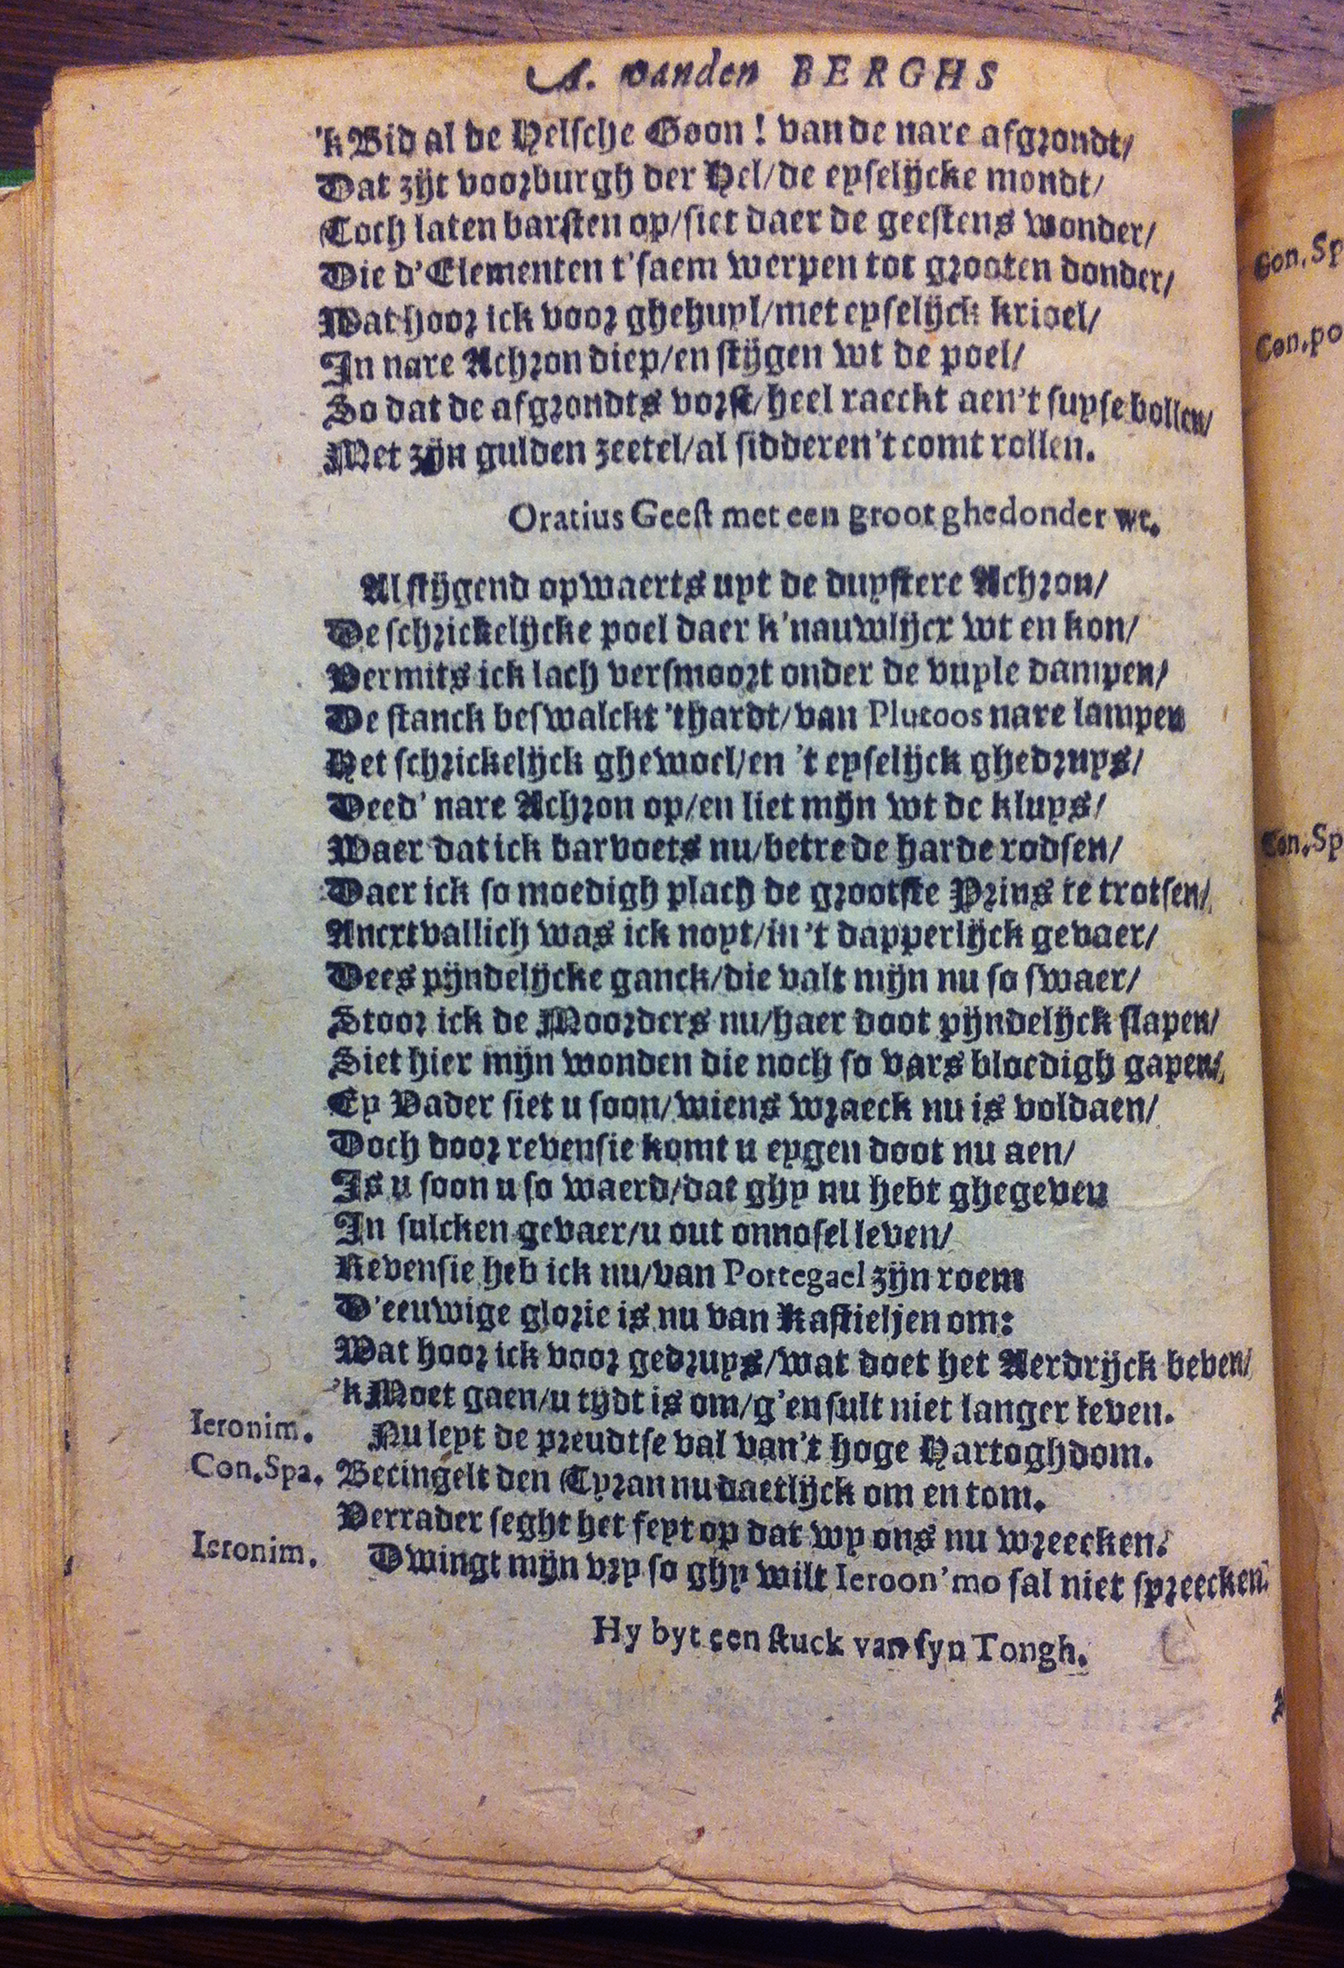 A. vanden BERGHS
'k Bid al de Helsche Goon! van de nare afgrondt/
Dat zijt voorburgh der Hel/de eyselijcke mondt/
Toch laten barsten op/siet daer de geestens wonder/
Die d'Elementen t'saem werpen tot grooten donder/
Wat hoor ick voor ghehuyl/met eyselijck krioel/
In nare Achron diep/en stijgen wt de poel/
So dat de afgrondts vorst/heel raeckt aen't suyse bollen/
Met zijn gulden zeetel/al sidderen't comt rollen.
Oratius Geest met een groot ghedonder wt.
Al stijgend opwaerts uyt de duystere Achron/
De schrickelijcke poel daer k'nauwlijcx wt en kon/
Vermits ick lach versmoort onder de vuyle dampen/
De stanck beswalckt 'thardt/van Plutoos nare lampen
Het schrickelijck ghewoel/en 't eyselijck ghedruys/
Deed' nare Achron op/en liet mijn wt de kluys/
Waer dat ick barvoets nu/betrede harde rodsen/
Daer ick so moedigh plach de grootste Prins te trotsen/
Ancxtvallich was ick noyt/in 't dapperlijck gevaer/
Dees pijndelijcke ganck/die valt mijn nu so swaer/
Stoor ick de Moorders nu/haer doot pijndelijck slapen/
Siet hier mijn wonden die noch so vars bloedigh gapen/
Ey Vader siet u soon/wiens wraeck nu is voldaen/
Doch door revensie komt u eygen doot nu aen/
Is u soon u so waerd/dat ghy nu hebt ghegeven
In sulcken gevaer/u out onnosel leven/
Revensie heb ick nu/van Portegael zijn roem
D'eeuwige glorie is nu van Kastieljen om:
Wat hoor ick voor gedruys/wat doet het Aerdrijck beven/
'k Moet gaen/u tijdt is om/g'en sult niet langer leven.
Ieronim. Nu leyt de preudtse val van't hoge Hartoghdom.
Con.Spa. Becingelt den Tyran nu daetlijck om en tom.
Verrader seght het feyt op dat wy ons nu wreecken.
Ieronim. Dwingt mijn vry so ghy wilt Ieroon'mo sal niet spreecken.
Hy byt een stuck van syn Tongh.
Con.Sp
Con.po
Con.Sp